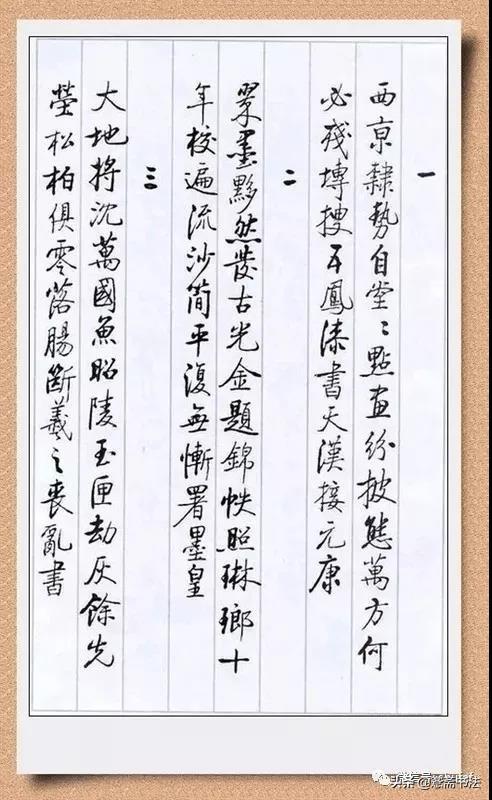 一
西京隸勢自堂〻點畫紛披態萬方何
必殘塼搜五鳳漆書天漢接元康
二
翠墨黟然發古光金題錦帙照琳瑯十
年校遍流沙簡平復無慚署墨皇
三
大地將沈萬國魚昭陵玉匣劫灰餘先
塋松柏俱零落腸斷羲之喪亂書
头条